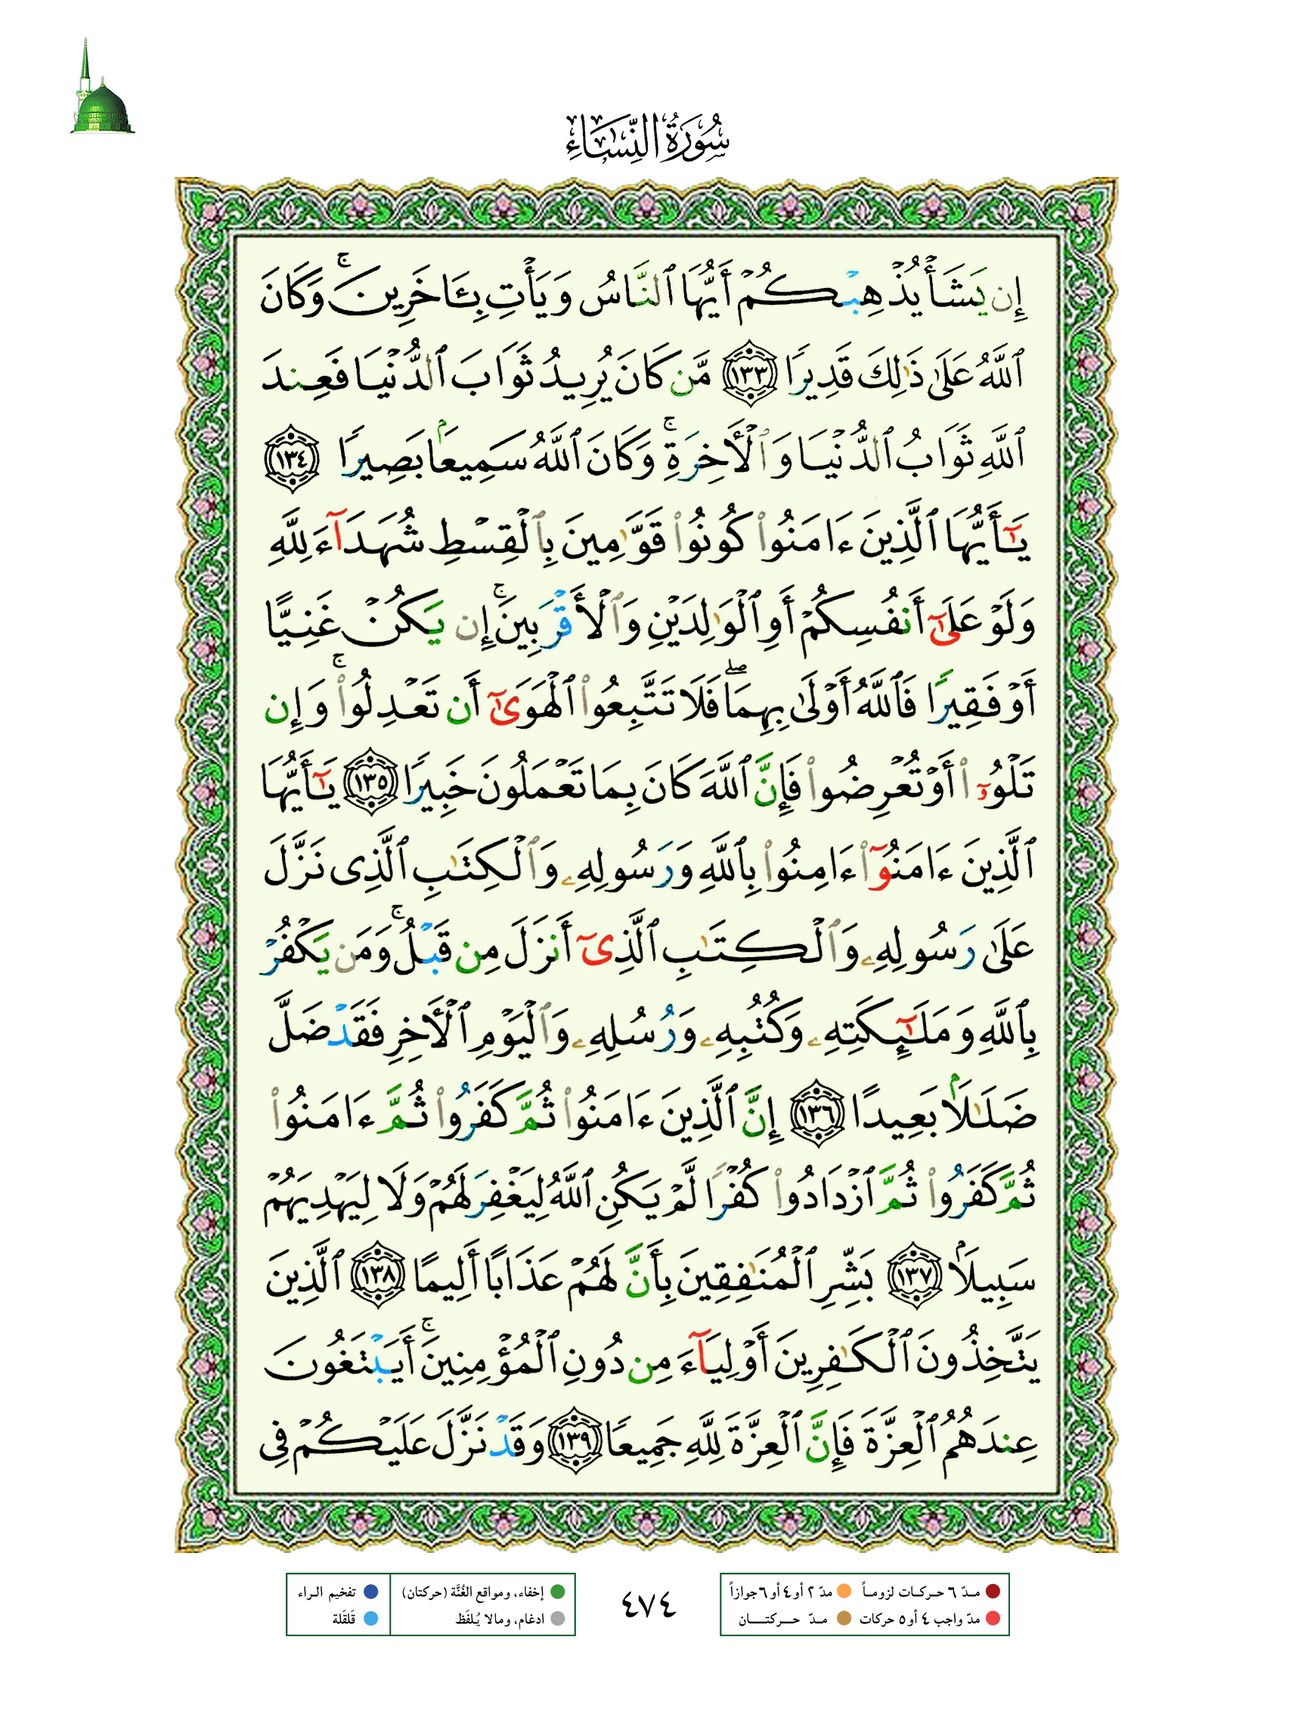 سُورَةُ النِّسَاءِ
إِن يَشَأْ يُذْهِبْكُمْ أَيُّهَا ٱلنَّاسُ وَيَأْتِ بِـَٔاخَرِينَ ۚ وَكَانَ
ٱللَّهُ عَلَىٰ ذَٰلِكَ قَدِيرًا ١٣٣ مَّن كَانَ يُرِيدُ ثَوَابَ ٱلدُّنْيَا فَعِندَ
ٱللَّهِ ثَوَابُ ٱلدُّنْيَا وَٱلْأَخِرَةِ ۚ وَكَانَ ٱللَّهُ سَمِيعًۢا بَصِيرًا ١٣٤
يَٰٓأَيُّهَا ٱلَّذِينَ ءَامَنُوا۟ كُونُوا۟ قَوَّٰمِينَ بِٱلْقِسْطِ شُهَدَآءَ لِلَّهِ
وَلَوْ عَلَىٰٓ أَنفُسِكُمْ أَوِ ٱلْوَٰلِدَيْنِ وَٱلْأَقْرَبِينَ ۚ إِن يَكُنْ غَنِيًّا
أَوْ فَقِيرًا فَٱللَّهُ أَوْلَىٰ بِهِمَا ۖ فَلَا تَتَّبِعُوا۟ ٱلْهَوَىٰٓ أَن تَعْدِلُوا۟ ۚ وَإِن
تَلْوُۥٓا۟ أَوْ تُعْرِضُوا۟ فَإِنَّ ٱللَّهَ كَانَ بِمَا تَعْمَلُونَ خَبِيرًا ١٣٥ يَٰٓأَيُّهَا
ٱلَّذِينَ ءَامَنُوٓا۟ ءَامِنُوا۟ بِٱللَّهِ وَرَسُولِهِۦ وَٱلْكِتَٰبِ ٱلَّذِى نَزَّلَ
عَلَىٰ رَسُولِهِۦ وَٱلْكِتَٰبِ ٱلَّذِىٓ أَنزَلَ مِن قَبْلُ ۚ وَمَن يَكْفُرْ
بِٱللَّهِ وَمَلَٰٓئِكَتِهِۦ وَكُتُبِهِۦ وَرُسُلِهِۦ وَٱلْيَوْمِ ٱلْأَخِرِ فَقَدْ ضَلَّ
ضَلَٰلًۢا بَعِيدًا ١٣٦ إِنَّ ٱلَّذِينَ ءَامَنُوا۟ ثُمَّ كَفَرُوا۟ ثُمَّ ءَامَنُوا۟
ثُمَّ كَفَرُوا۟ ثُمَّ ٱزْدَادُوا۟ كُفْرًا لَّمْ يَكُنِ ٱللَّهُ لِيَغْفِرَ لَهُمْ وَلَا لِيَهْدِيَهُمْ
سَبِيلًۢا ١٣٧ بَشِّرِ ٱلْمُنَٰفِقِينَ بِأَنَّ لَهُمْ عَذَابًا أَلِيمًا ١٣٨ ٱلَّذِينَ
يَتَّخِذُونَ ٱلْكَٰفِرِينَ أَوْلِيَآءَ مِن دُونِ ٱلْمُؤْمِنِينَ ۚ أَيَبْتَغُونَ
عِندَهُمُ ٱلْعِزَّةَ فَإِنَّ ٱلْعِزَّةَ لِلَّهِ جَمِيعًا ١٣٩ وَقَدْ نَزَّلَ عَلَيْكُمْ فِى
مدّ ٦ حركات لزوماً مدّ ٢ أو ٤ أو ٦ جوازاً
مدّ واجب ٤ أو ٥ حركات مدّ حركتان
٤٧٤
إخفاء، ومواقع الغُنَّة (حركتان) تفخيم الراء
ادغام، ومالا يُلفَظ قَلقَلة